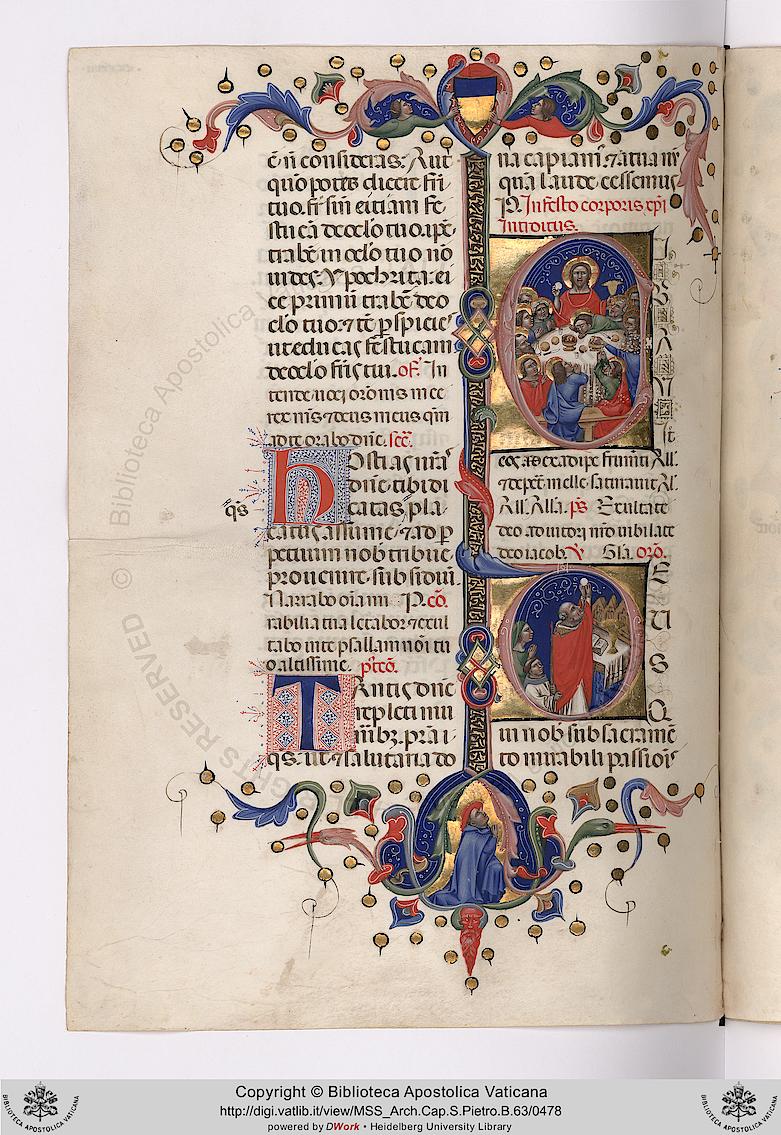 c̄ n̄ consideras. Aut
quō potes dicere fr̄i
tuo. fr̄ sine eiciam fe
stucā de oclo tuo. ip̄e
trabē in oclo tuo nō
uides. Ypochrita. ei
ce primū trabē de o
clo tuo. ⁊ tc̄ ꝑspicies
ut educas festucam
de oclo fr̄is tui. of. In
tende uoci orōnis mee
rex m̄s ⁊ deus meus qm̄
ad te orabo dn̄e. sec̄.
Hostias nr̄as
dn̄e tibi di
catas pla
qs̄
catus assume. ⁊ ad ꝑ
petuum nob tribue
prouenire subsidiū.
Narrabo oīa mi P. cō.
rabilia tua letabor ⁊ exul
tabo in te psallam noī tu
o altissime. p't cō.
Tantis dn̄e
repleti mu
nībꝫ. pr̄a i
qs̄. ut ⁊ salutaria do
na capiam' ⁊ a tua nūr
quā laude cessemus
P. In festo corporis xp̄i
Introitus.
CIBAVIT
eos ex adipe frumēti All'.
⁊ de petra melle saturauit All'.
All'. All'a. ps̄ Exultate
deo adiutori nr̄o iubilate
deo iacob. V Gl'a. orō.
DEUS
Q
ui nob sub sacramē
to mirabili passiōis
Biblioteca Apostolica Vaticana
© RIGHTS RESERVED
Copyright © Biblioteca Apostolica Vaticana
http://digi.vatlib.it/view/MSS_Arch.Cap.S.Pietro.B.63/0478
powered by DWork • Heidelberg University Library
BIBLIOTECA APOSTOLICA VATICANA
BIBLIOTECA APOSTOLICA VATICANA